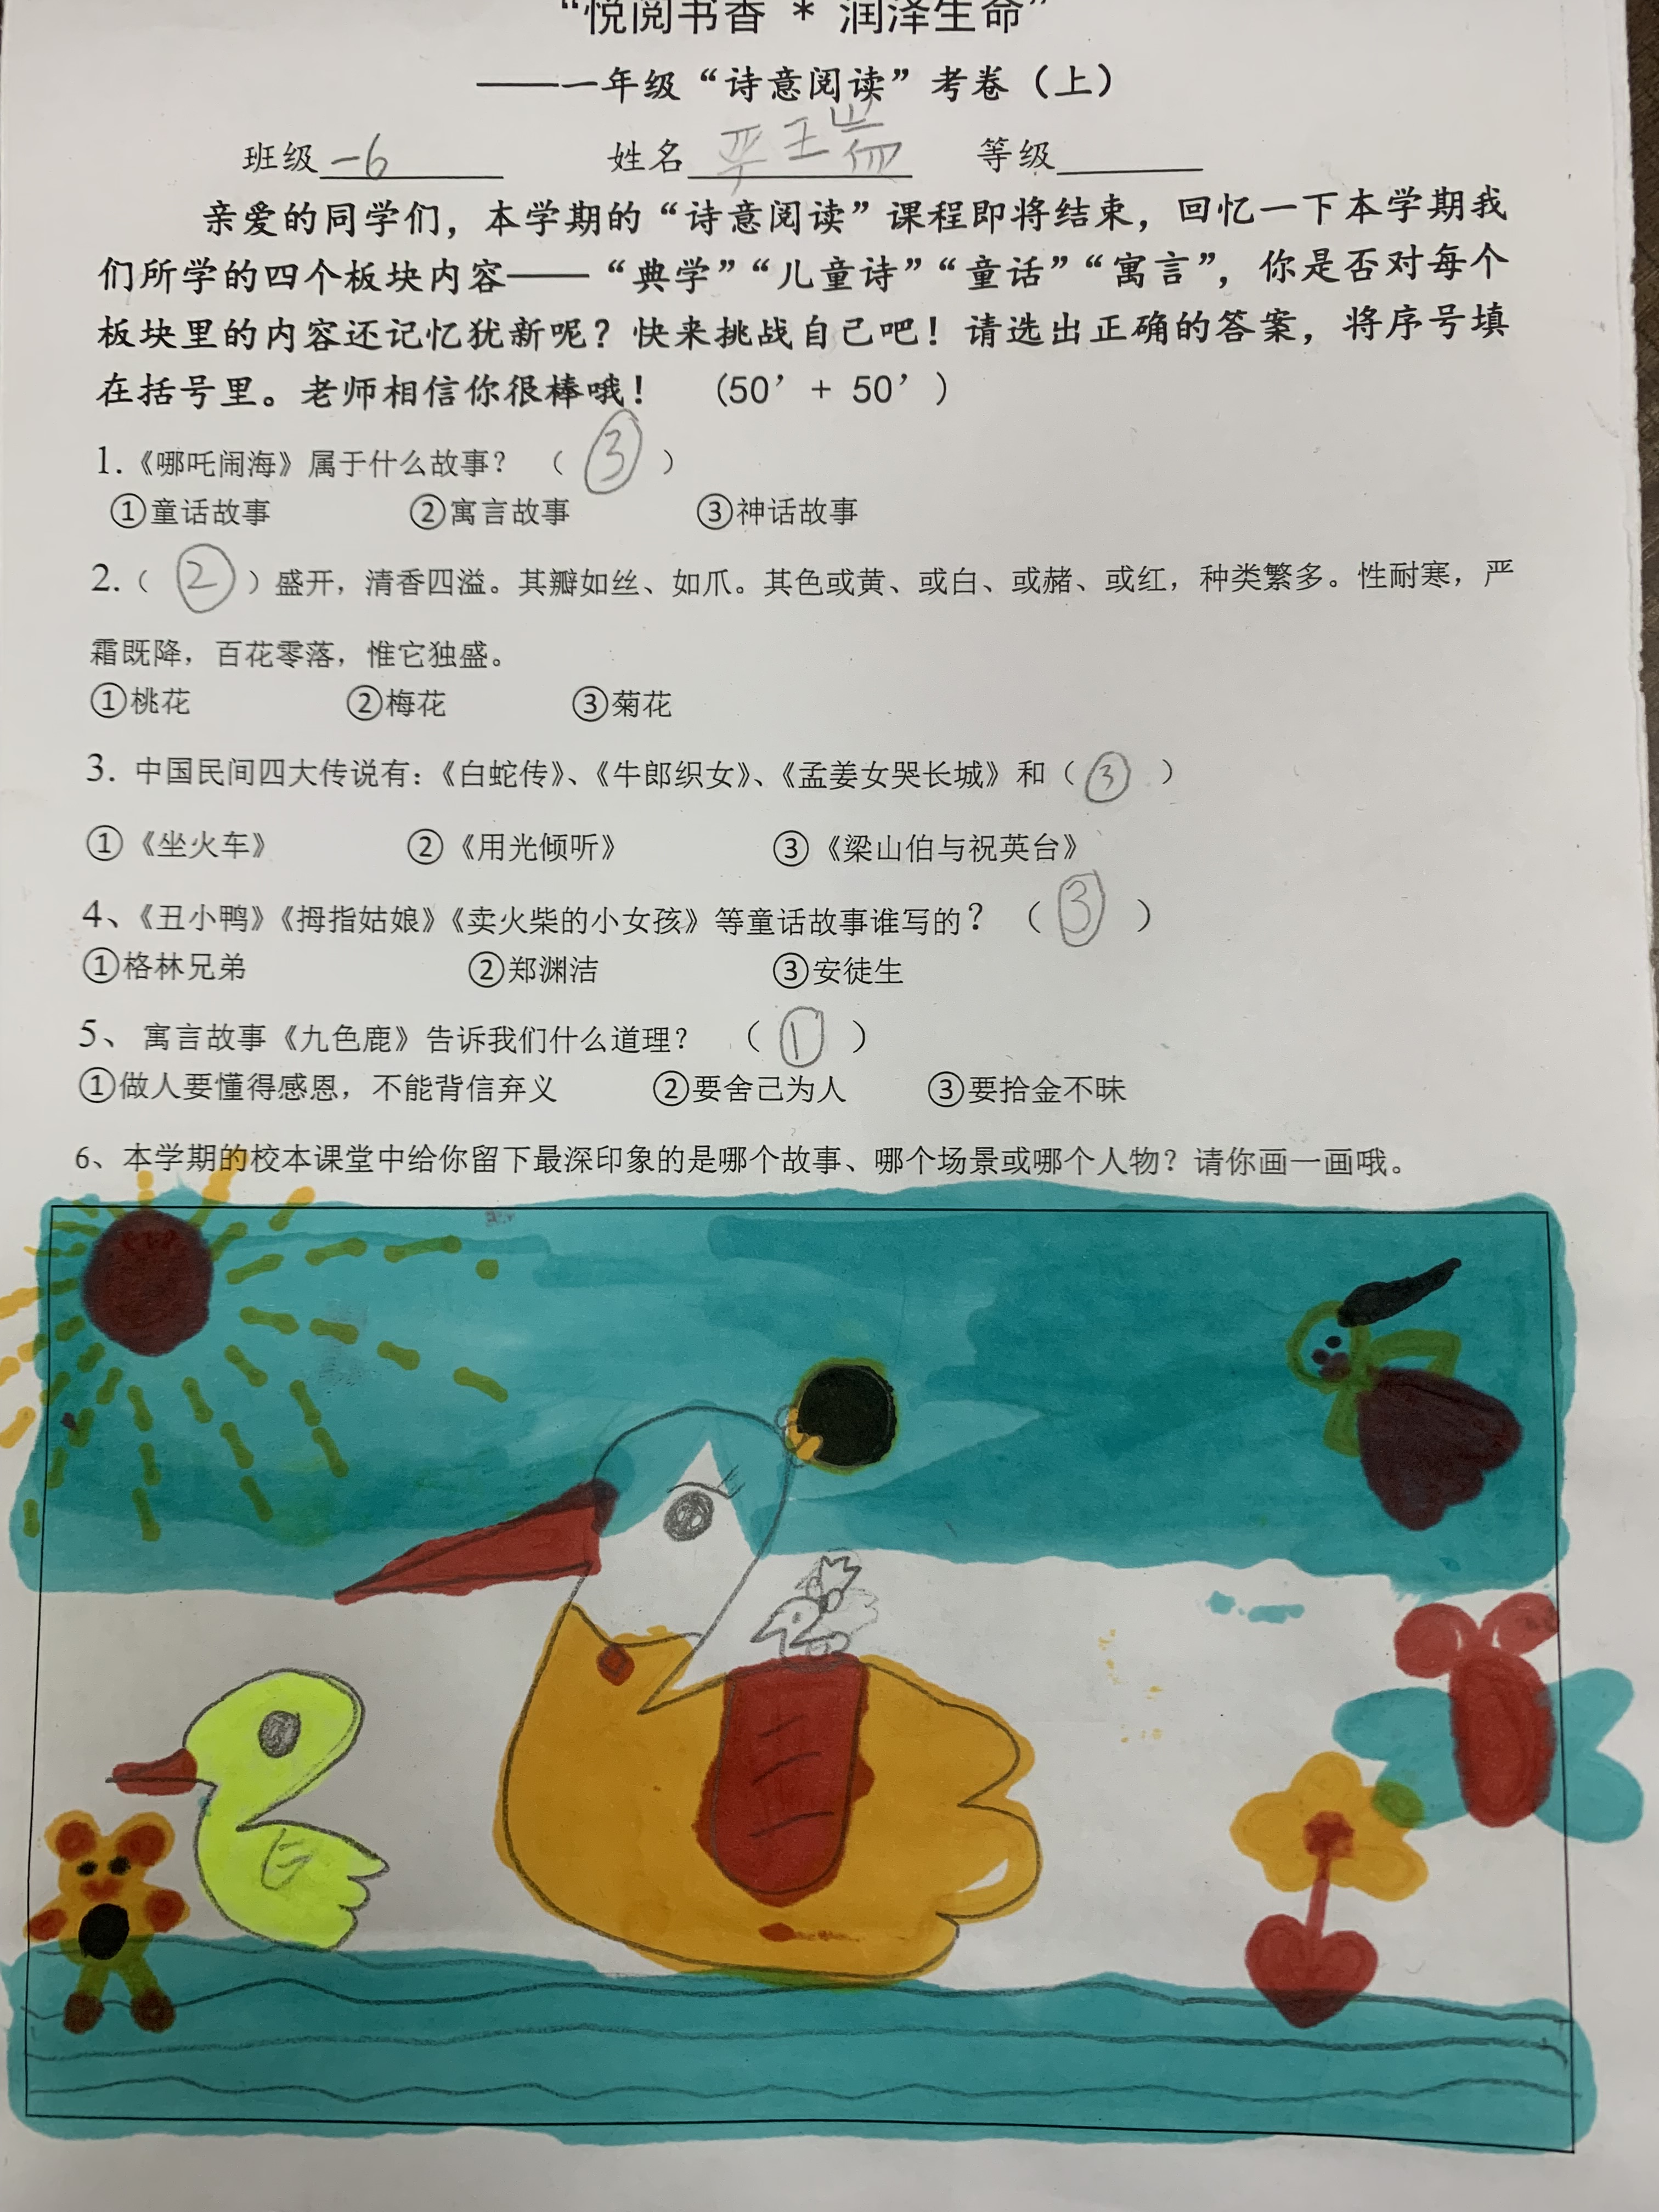 “悦阅书香 * 润泽生命”
——一年级“诗意阅读”考卷（上）
班级 一6 姓名 严王耑 等级
亲爱的同学们，本学期的“诗意阅读”课程即将结束，回忆一下本学期我
们所学的四个板块内容——“典学”“儿童诗”“童话”“寓言”，你是否对每个
板块里的内容还记忆犹新呢？快来挑战自己吧！请选出正确的答案，将序号填
在括号里。老师相信你很棒哦！ （50’+ 50’）
1.《哪吒闹海》属于什么故事？（ ③ ）
①童话故事 ②寓言故事 ③神话故事
2.（ ② ）盛开，清香四溢。其瓣如丝、如爪。其色或黄、或白、或赭、或红，种类繁多。性耐寒，严
霜既降，百花零落，惟它独盛。
①桃花 ②梅花 ③菊花
3. 中国民间四大传说有：《白蛇传》、《牛郎织女》、《孟姜女哭长城》和（ ③ ）
①《坐火车》 ②《用光倾听》 ③《梁山伯与祝英台》
4、《丑小鸭》《拇指姑娘》《卖火柴的小女孩》等童话故事谁写的？（ ③ ）
①格林兄弟 ②郑渊洁 ③安徒生
5、 寓言故事《九色鹿》告诉我们什么道理？（ ① ）
①做人要懂得感恩，不能背信弃义 ②要舍己为人 ③要拾金不昧
6、本学期的校本课堂中给你留下最深印象的是哪个故事、哪个场景或哪个人物？请你画一画哦。